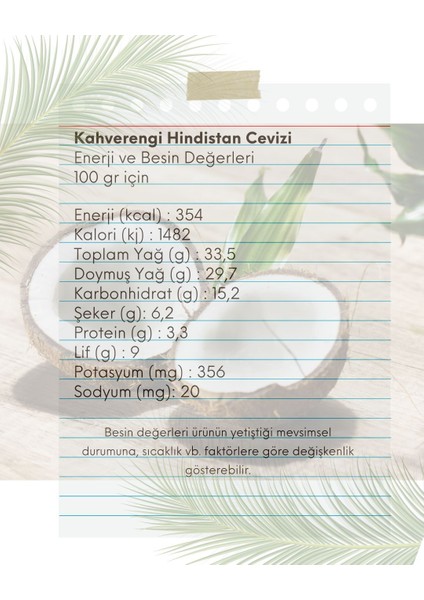 Kahverengi Hindistan Cevizi
Enerji ve Besin Değerleri
100 gr için
Enerji (kcal) : 354
Kalori (kj) : 1482
Toplam Yağ (g) : 33,5
Doymuş Yağ (g) : 29,7
Karbonhidrat (g) : 15,2
Şeker (g): 6,2
Protein (g) : 3,3
Lif (g) : 9
Potasyum (mg) : 356
Sodyum (mg): 20
Besin değerleri ürünün yetiştiği mevsimsel
durumuna, sıcaklık vb. faktörlere göre değişkenlik
gösterebilir.